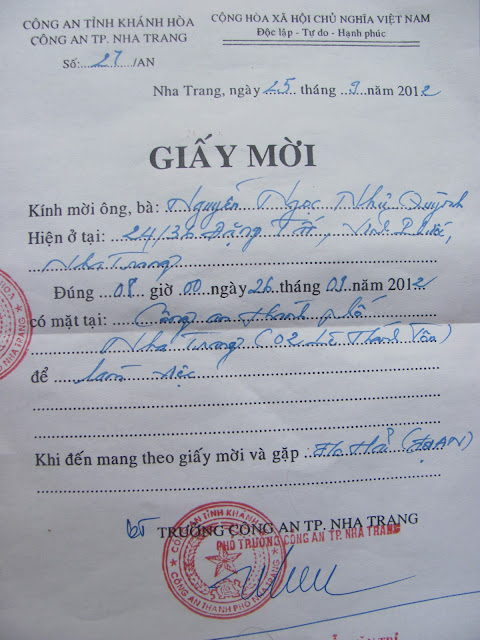 CÔNG AN TỈNH KHÁNH HÒA
CÔNG AN TP. NHA TRANG
Số: 27 /AN
CỘNG HÒA XÃ HỘI CHỦ NGHĨA VIỆT NAM
Độc lập - Tự do - Hạnh phúc
Nha Trang, ngày 25 tháng 9 năm 2012
GIẤY MỜI
Kính mời ông, bà: Nguyễn Ngọc Như Quỳnh
Hiện ở tại: 24/36 Đặng Tất,
Nha Trang
Đúng 08 giờ 00 ngày 26 tháng 09 năm 2012
có mặt tại: Công an thành phố
Nha Trang (02 Lê Thánh Tôn)
để làm việc
Khi đến mang theo giấy mời và gặp
TRƯỞNG CÔNG AN TP. NHA TRANG
PHÓ TRƯỞNG CÔNG AN TP. NHA TRANG
CÔNG AN TỈNH KHÁNH
CÔNG AN THÀNH PHỐ NHA TRANG